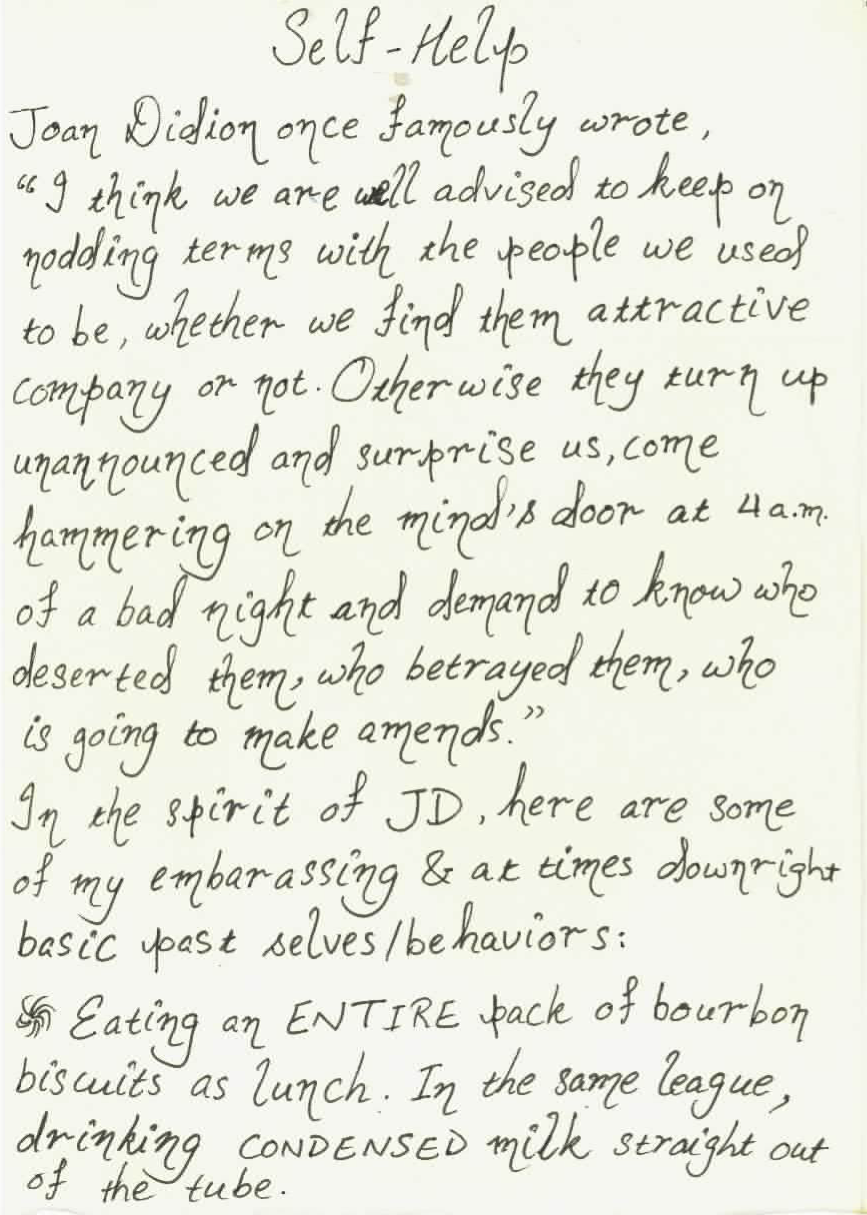 Self-Help
Joan Didion once famously wrote,
“I think we are well advised to keep on
nodding terms with the people we used
to be, whether we find them attractive
company or not. Otherwise they turn up
unannounced and surprise us, come
hammering on the mind's door at 4 a.m.
of a bad night and demand to know who
deserted them, who betrayed them, who
is going to make amends.”
In the spirit of JD, here are some
of my embarassing & at times downright
basic past selves/behaviors:
Eating an ENTIRE pack of bourbon
biscuits as lunch. In the same league,
drinking CONDENSED milk straight out
of the tube.